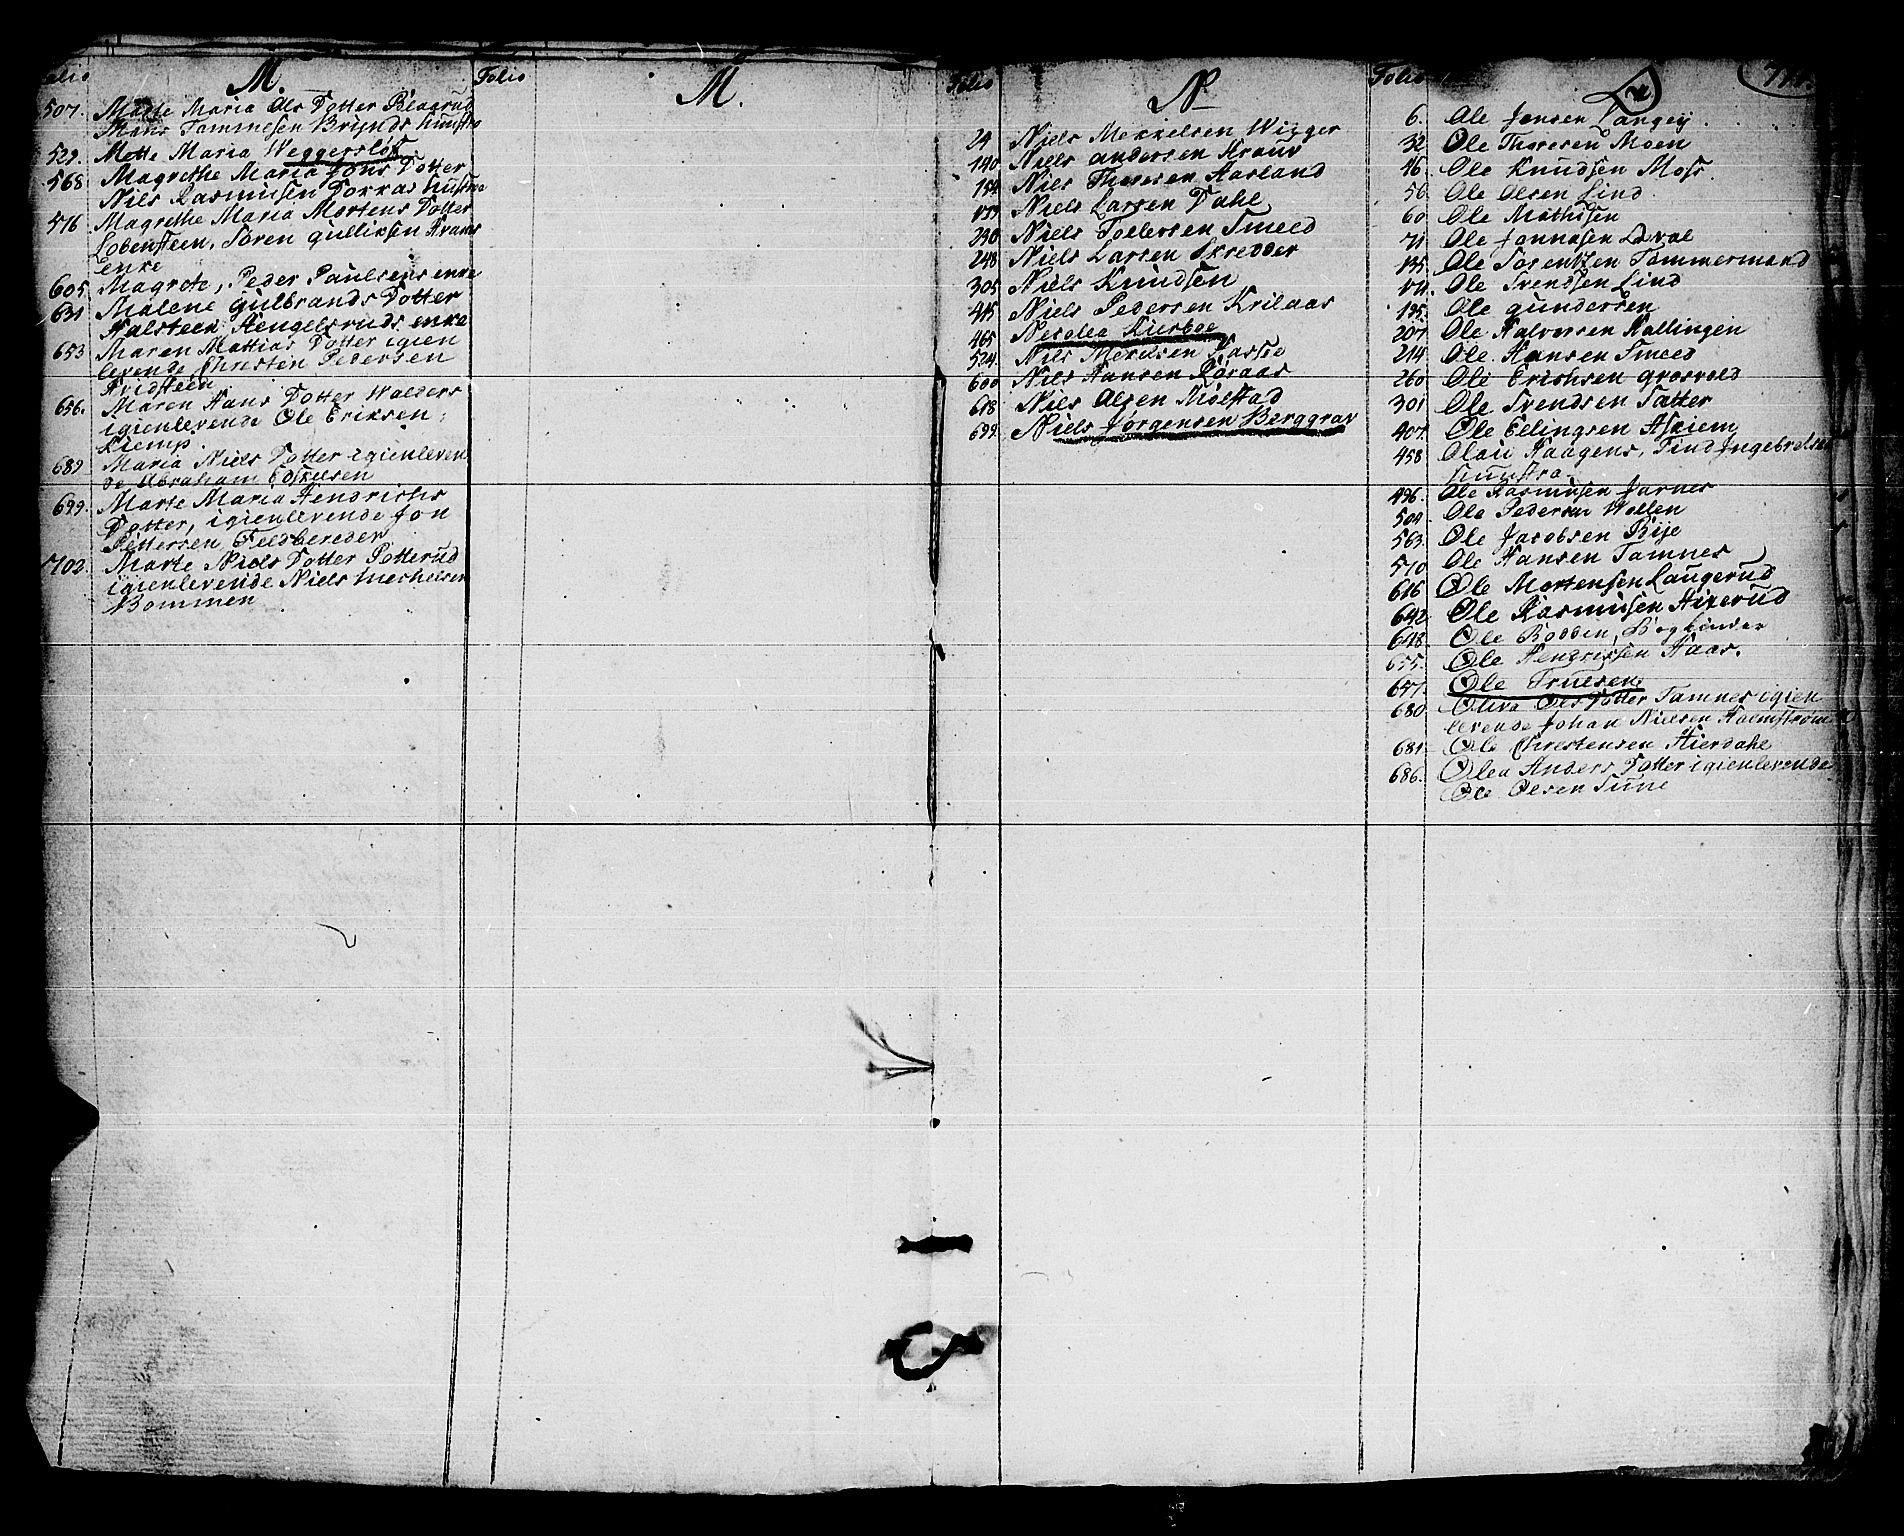 Folio
M.
507. Marte Maria Ols Dotter Blagrud
Hans Tommesen Brynds hustro
529. Mette Maria Weggersløf
568 Magrethe Maria Jons Dotter
Nils Rasmusen Torkas hustro
576 Magrethe Maria Mortens Dotter
Lobensteen, Soren Gulliksen Krams
enke
605 Magrete, Peder Paulsens enke
631 Malene Gulbrands Dotter
Halsteen Hengelsruds enke
653 Maren Mattias Dotter igien
levende Christen Pedersen
Hvidsteen
656. Maren Hans Dotter Walders
igienlevende Ole Eriksen
Kiemp.
689 Maria Niels Dotter igienleven
de Abraham Eskelsen
699. Marte Maria Hendrichs
Dotter, igienlevende Jon
Pettersen Feldbereder
702. Marte Niels Dotter Potterud
igienlevende Niels Mechelsen
Bommen
Folio
M.
Folio
N
24 Niels Mekkelsen Wigger
140 Niels Andersen Kraus
154 Niels Thoresen Aasland
Niels Larsen Dahl
230 Niels Tollersen Smeed
248 Niels Larsen Skredder
305 Niels Knudsen
415 Niels Pedersen Krilaas
465 Nicolea Kierboe
524. Nils Mekelsen
600 Nils Hansen Røraas
618 Nils Olsen Mølstad
699. Niels Jørgensen Berggrav
Folio
O
6. Ole Jensen Langeij
32 Ole Thoresen Moen
46. Ole Knudsen Moss.
56 Ole Olsen Lind
60 Ole Mathisen
71 Ole Jonnasen
135 Ole Sorentzen Tømmermand
174. Ole Svendsen Lind
195. Ole Gundersen
207. Ole Halversen Hallingen
214 Ole Hansen Smeed
260 Ole Erichsen Grosvold
301 Ole Svendsen Tatter
407. Ole Ellingsen Askiem
458 Olau Haagens, Find Ingebretsens
hustro.
496. Ole Rasmusen Jarnes
509 Ole Pedersen Wollen
563. Ole Jacobsen Bije
570 Ole Hansen Tamnes
616 Ole Mortensen Laugerud
642 Ole Rasmusen Hixerud
648. Ole Bodben, Bogbinder
655. Ole Hendrissen Haas.
657. Ole Truelsen
680 Oliva Ols Dotter Tamnes igien
levende Johan Nielsen Halmstrøm
681. Ole Chrestensen Hierdahl
686. Olea Anders Dotter igienlevende
Ole Olsen Tune